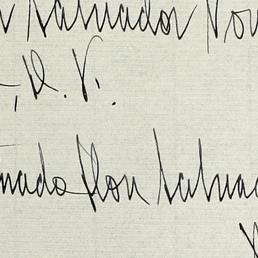 Salvador Nov
, D. F.
mado Don Salvad